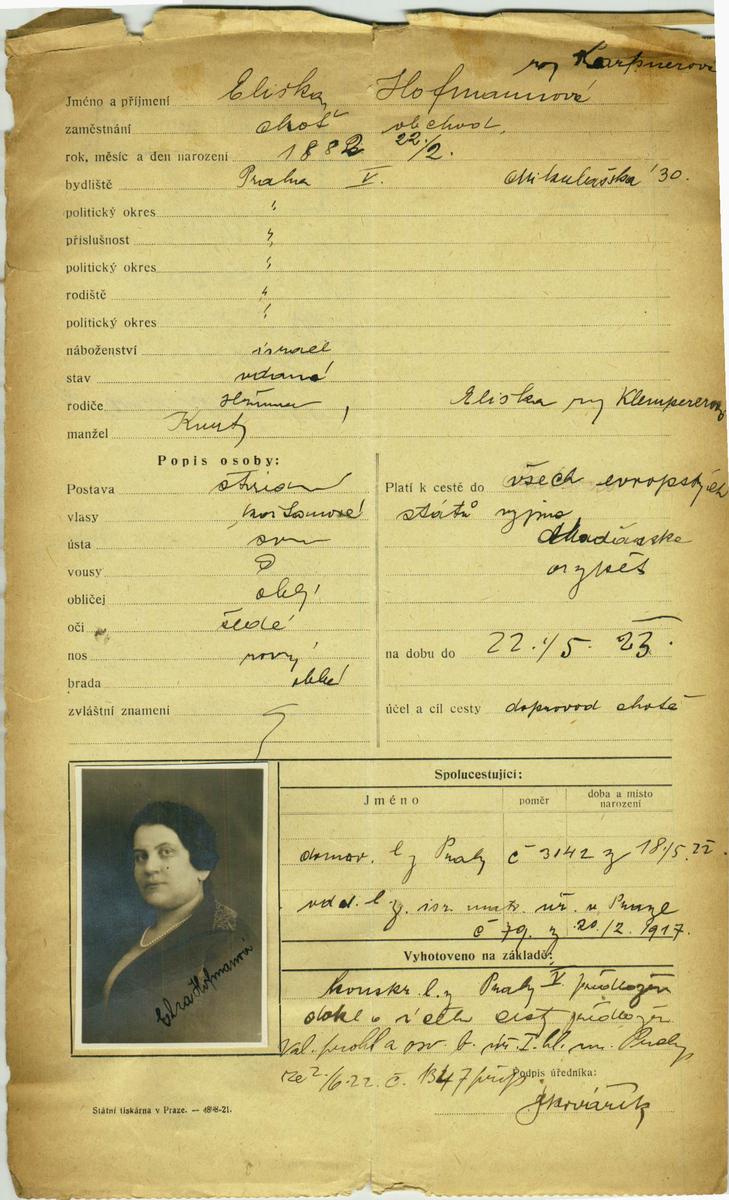 roz Karpnerová
Jméno a příjmení Eliska Hofmannová
zaměstnání choť obchod.
rok, měsíc a den narození 1882 22/2.
bydliště Praha V. Mikulášská 30.
politický okres "
příslušnost "
politický okres "
rodiště "
politický okres "
náboženství israel
stav vdaná
rodiče Eliska roz Klempererová
manžel
Popis osoby:
Postava střední
vlasy
ústa
vousy
obličej oblý
oči šedé
nos rovný
brada oblá
zvláštní znamení
Platí k cestě do všech evropských
států vyjma
Maďarska
na dobu do 22./5. 23.
účel a cíl cesty doprovod chotě
Spolucestující:
Jméno poměr doba a místo narození
domov. l z Prahy č 3142 z 18./5. 22.
odd. l. z. isr. matr. úř. v Praze
č 79. z 20./2. 1917.
Vyhotoveno na základě:
konskr. l. z Prahy V předložen
Podpis úředníka:
Elza Hofmanová
Státní tiskárna v Praze. — 21.